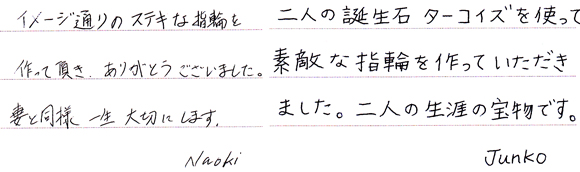 イメージ通りのステキな指輪を
作って頂き、ありがとうございました。
妻と同様一生大切にします。
Naoki
二人の誕生石ターコイズを使って
素敵な指輪を作っていただき
ました。二人の生涯の宝物です。
Junko